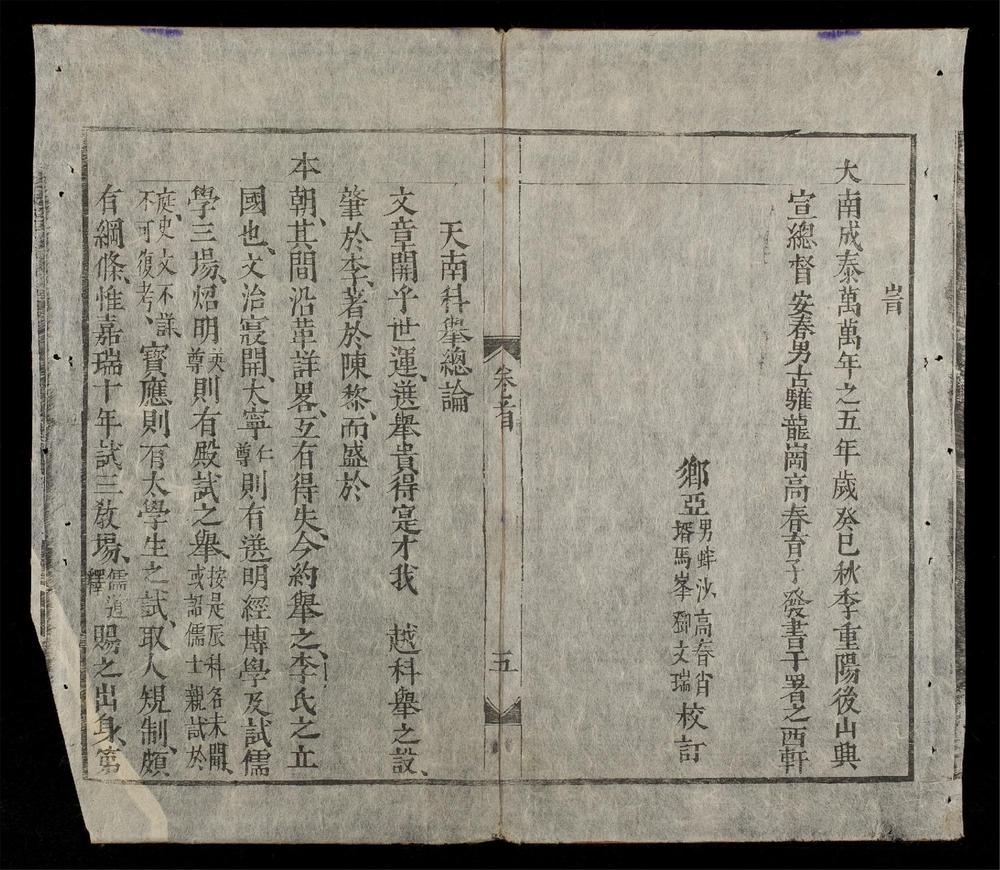 旹
大南成泰萬萬年之五年歲癸巳秋季重陽後山興
宣總督安春男古驩龍崗高春育子發書于署之西軒
鄉亞
男蚌沙高春肖
壻馬峯鄧文瑞
校訂
卷首
五
天南科舉總論
文章開乎世運、選舉貴得寔才我 越科舉之設、
肇於李、著於陳黎、而盛於
本朝、其間沿革詳畧、互有得失、今約舉之、李氏之立
國也、文治寖開、太寧仁尊則有選明經博學及試儒
學三場、炤明英尊則有殿試之舉、按是辰科名未開、或詔儒士親試於
庭、史文不詳、不可復考、寶應則有太學生之試、取人規制、頗
有綱條、惟嘉瑞十年試三教場、儒道釋賜之出身、第